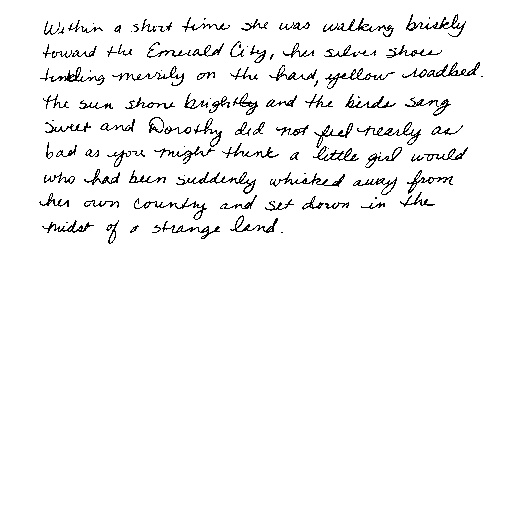 Within a short time she was walking briskly
toward the Emerald City, her silver shoes
tinkling merrily on the hard, yellow roadbed.
The sun shone brightly and the birds sang
sweet and Dorothy did not feel nearly as
bad as you might think a little girl would
who had been suddenly whisked away from
her own country and set down in the
midst of a strange land.